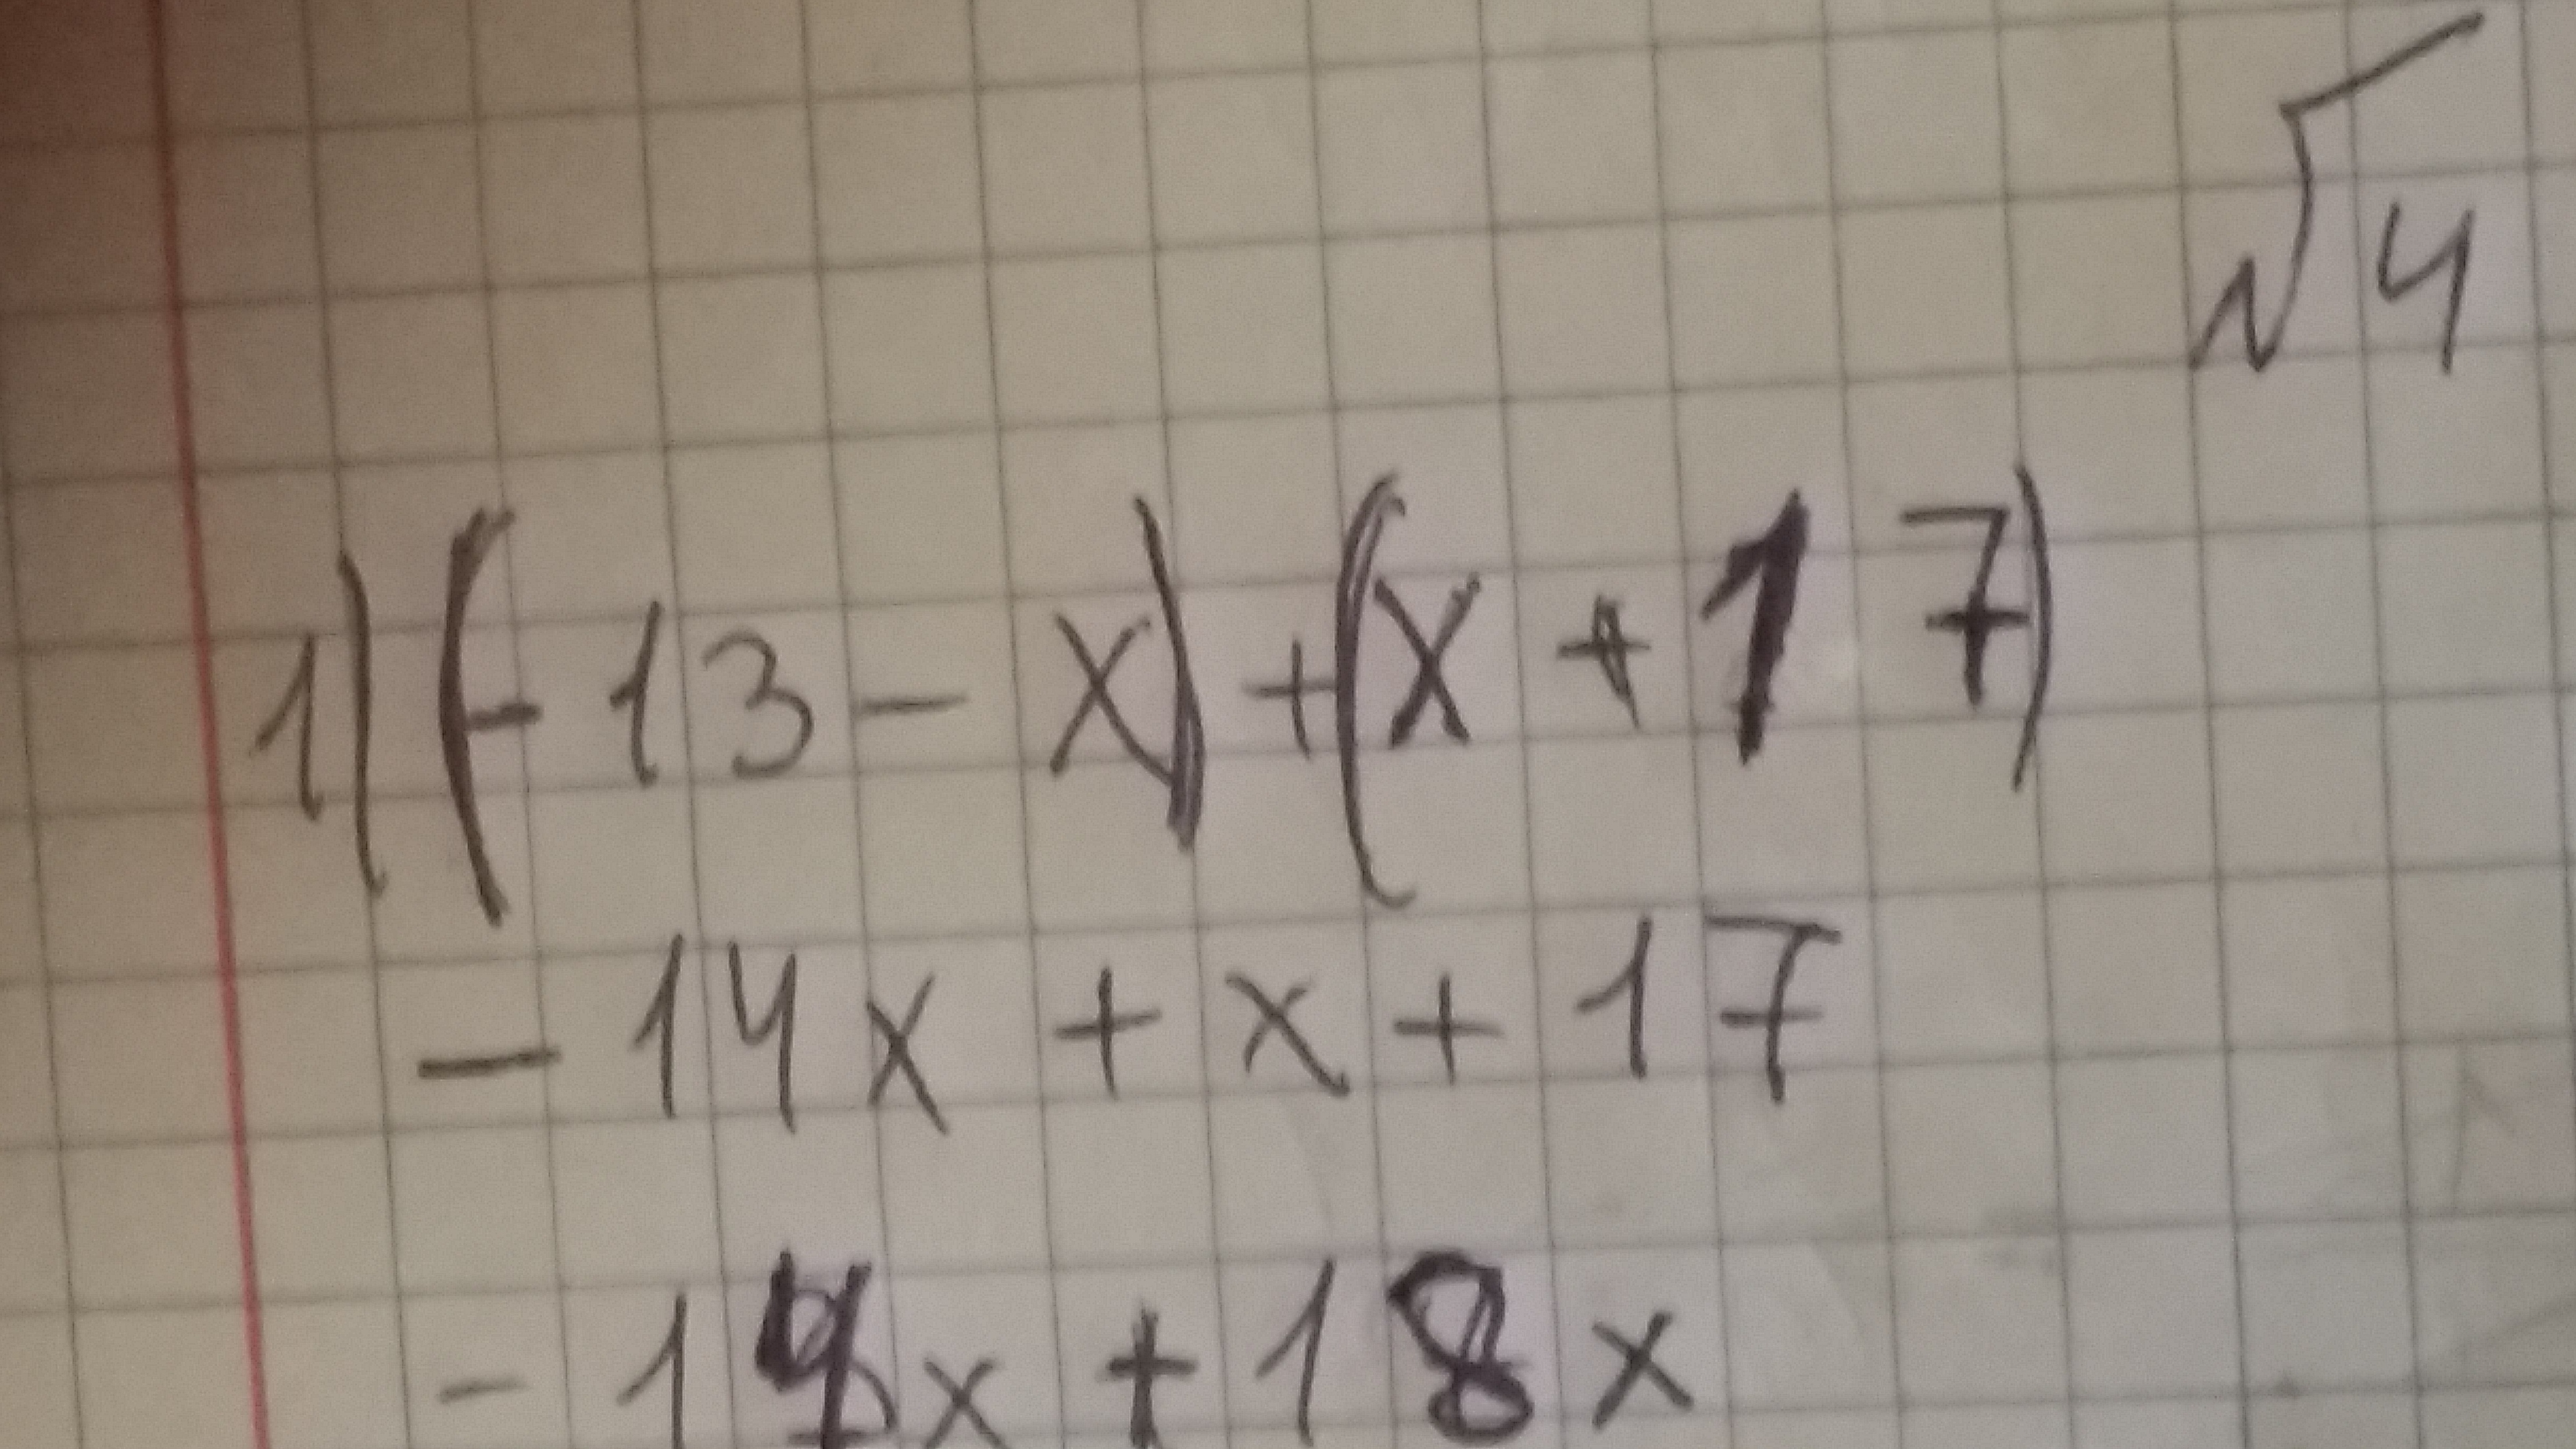 √4
1) (-13 - x) + (x + 17)
- 14x + x + 17
- 14x + 18x